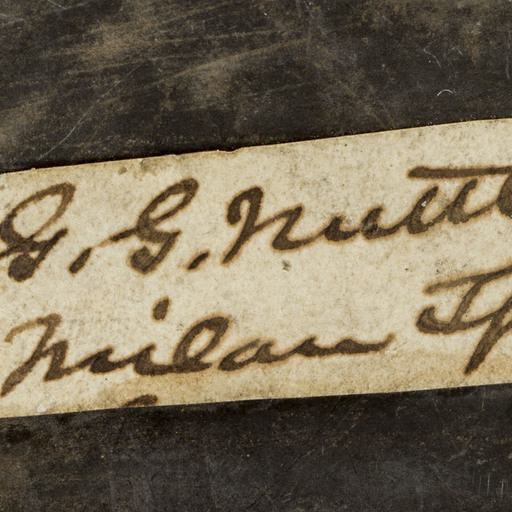 G. G. Nuttl
Milan Tp